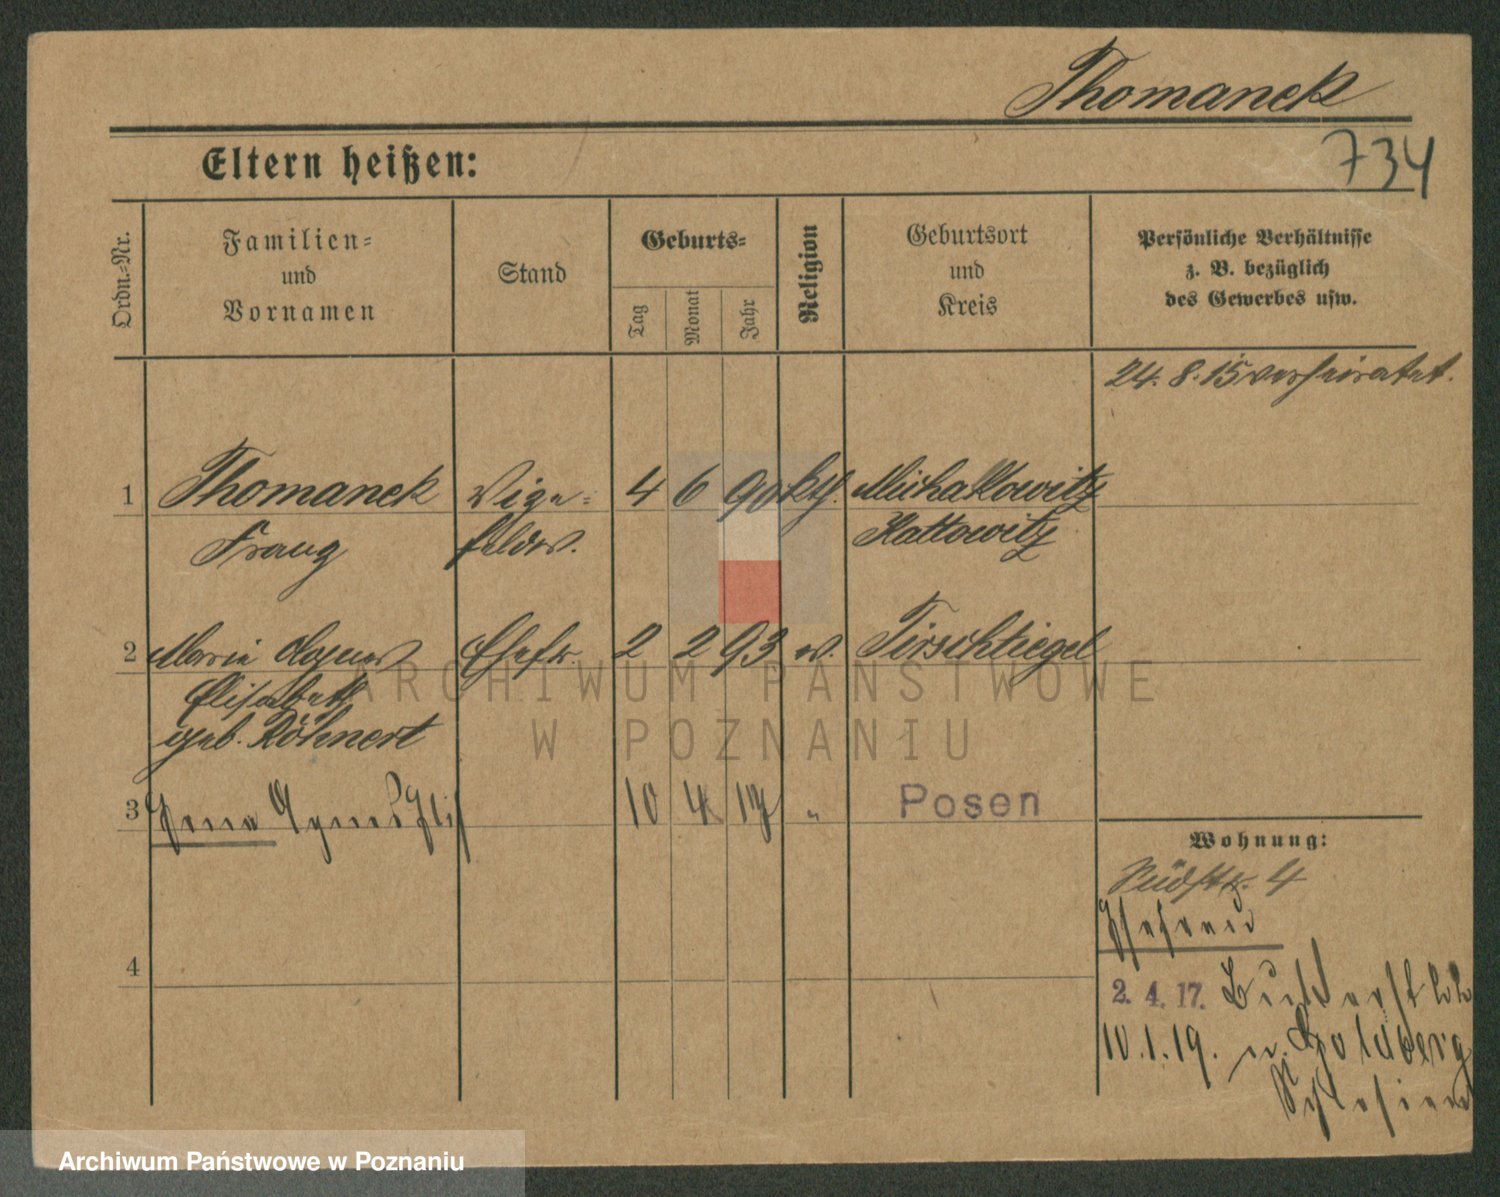 Thomanek
734
Eltern heißen:
Ordn.-Nr.
Familien- und Vornamen
Stand
Geburts-
Tag
Monat
Jahr
Religion
Geburtsort und Kreis
Persönliche Verhältnisse z. B. bezüglich des Gewerbes usw.
24. 8. 15 verheiratet.
1 Thomanek Vize- 4 6 90 kth. Michalkowitz
Franz feldw. Kattowitz
2 Maria Agnes Ehefr. 2 2 93 ev. Tirschtiegel
Elisabeth
geb. Röhnert
3 Agnes 10 4 17 " Posen
Wohnung:
Südstr. 4
4
2. 4. 17.
10.1.19. n. Goldberg
Schlesien
ARCHIWUM PAŃSTWOWE
W POZNANIU
Archiwum Państwowe w Poznaniu